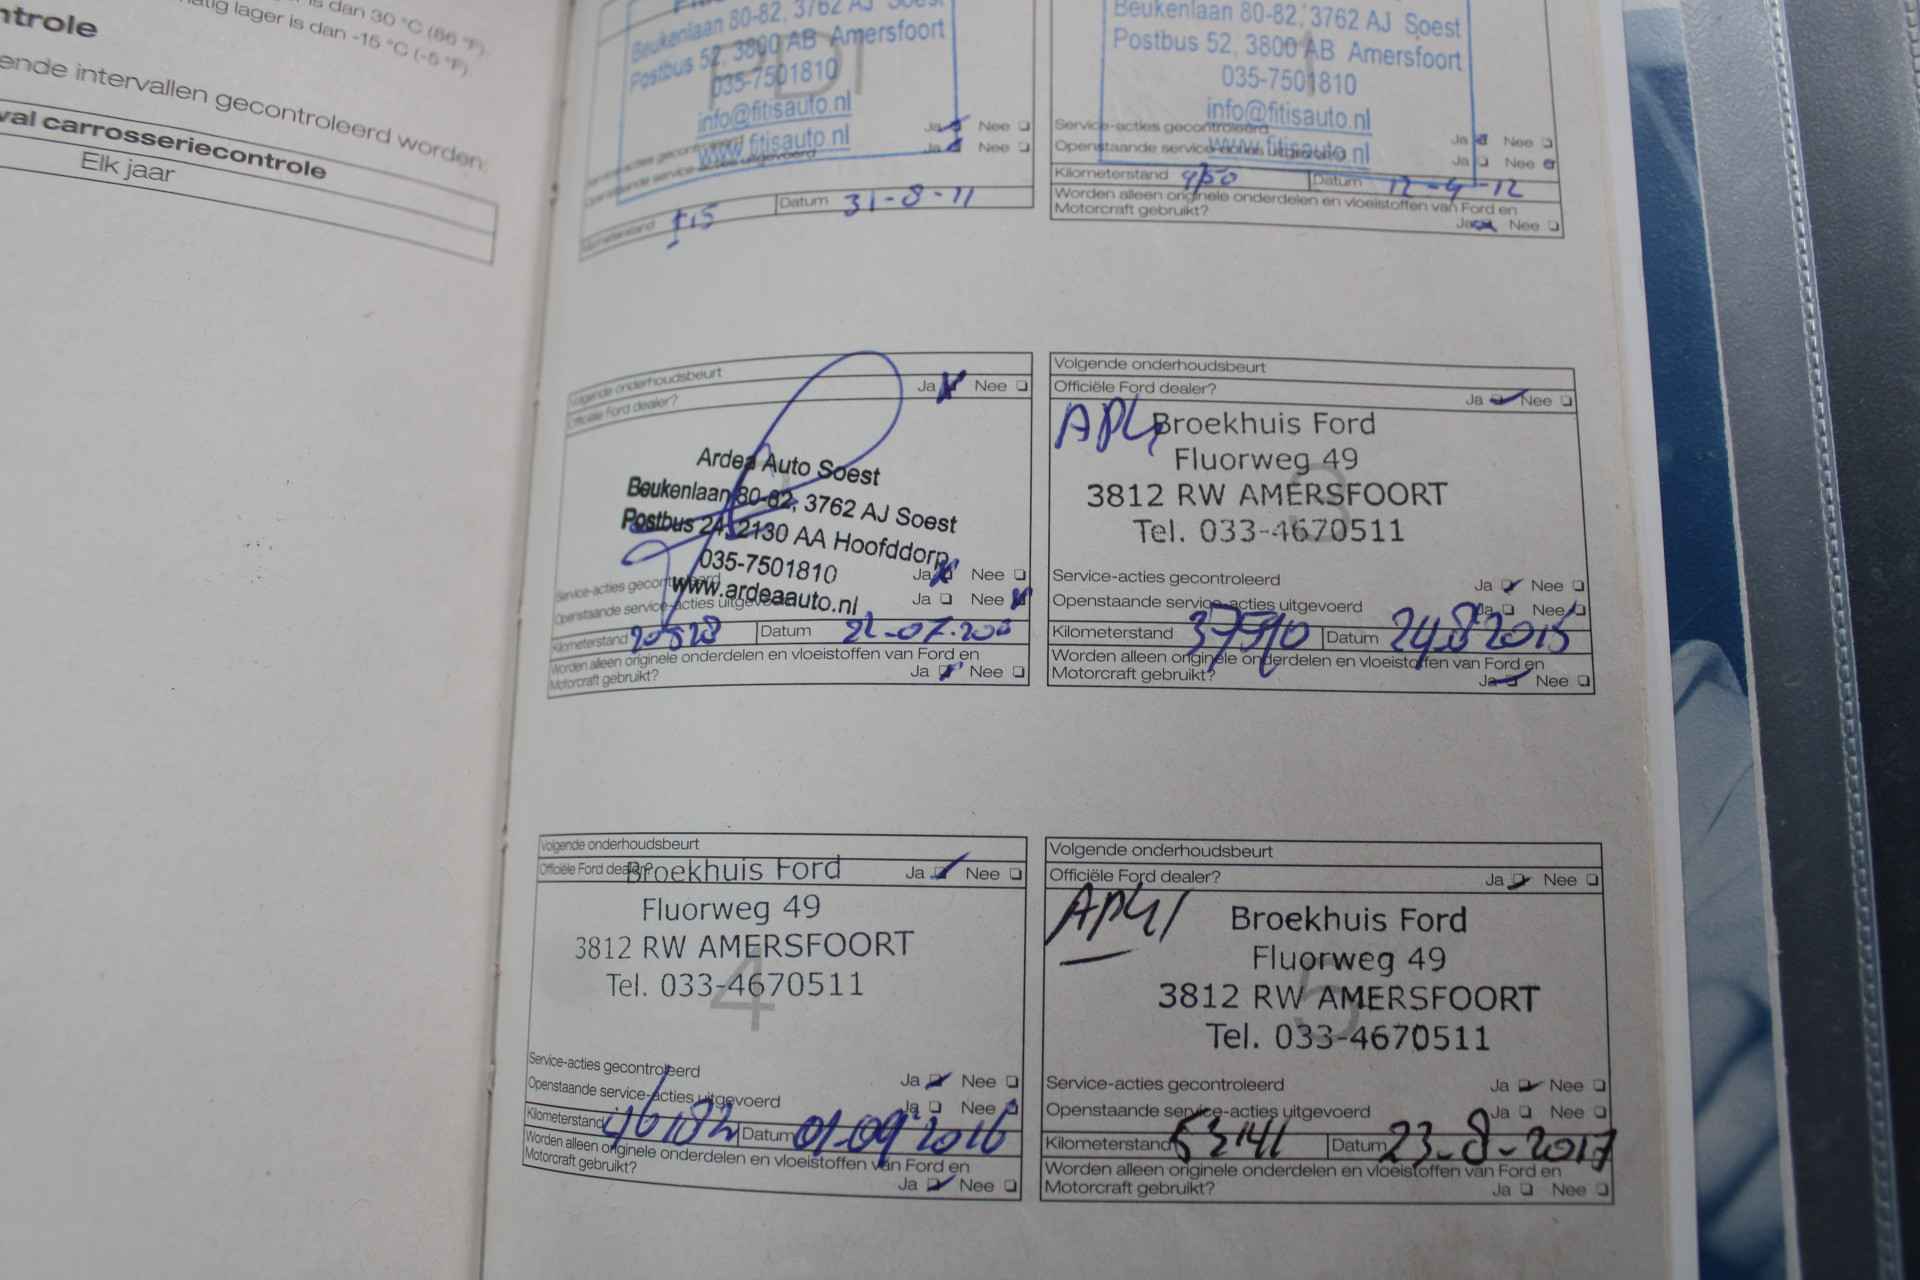 is dan 30 °C (86 °F).
lager is dan -15 °C (-5 °F).
ntrole
ende intervallen gecontroleerd worden:
val carrosseriecontrole
Elk jaar
Beukenlaan 80-82, 3762 AJ Soest
Postbus 52, 3800 AB Amersfoort
PDI
035-7501810
info@fitisauto.nl
www.fitisauto.nl
Ja Nee
Ja Nee
Datum 31-8-11
Beukenlaan 80-82, 3762 AJ Soest
Postbus 52, 3800 AB Amersfoort
1
035-7501810
info@fitisauto.nl
www.fitisauto.nl
Service-acties gecontroleerd Ja Nee
Openstaande service-acties uitgevoerd Ja Nee
Kilometerstand Datum 12-4-12
Worden alleen originele onderdelen en vloeistoffen van Ford en
Motorcraft gebruikt? Ja Nee
Volgende onderhoudsbeurt
Officiële Ford dealer? Ja Nee
Ardea Auto Soest
Beukenlaan 80-82, 3762 AJ Soest
Postbus 24, 2130 AA Hoofddorp
035-7501810
www.ardeaauto.nl
Service-acties gecontroleerd Ja Nee
Openstaande service-acties uitgevoerd Ja Nee
Kilometerstand 20828 Datum
Worden alleen originele onderdelen en vloeistoffen van Ford en
Motorcraft gebruikt? Ja Nee
Volgende onderhoudsbeurt
Officiële Ford dealer? Ja Nee
Broekhuis Ford
Fluorweg 49
3812 RW AMERSFOORT
3
Tel. 033-4670511
Service-acties gecontroleerd Ja Nee
Openstaande service-acties uitgevoerd Ja Nee
Kilometerstand Datum 24.8.2015
Worden alleen originele onderdelen en vloeistoffen van Ford en
Motorcraft gebruikt? Ja Nee
Volgende onderhoudsbeurt
Officiële Ford dealer? Ja Nee
Broekhuis Ford
Fluorweg 49
3812 RW AMERSFOORT
Tel. 033-4670511
4
Service-acties gecontroleerd Ja Nee
Openstaande service-acties uitgevoerd Ja Nee
Kilometerstand Datum 01-09-2016
Worden alleen originele onderdelen en vloeistoffen van Ford en
Motorcraft gebruikt? Ja Nee
Volgende onderhoudsbeurt
Officiële Ford dealer? Ja Nee
Broekhuis Ford
Fluorweg 49
3812 RW AMERSFOORT
5
Tel. 033-4670511
Service-acties gecontroleerd Ja Nee
Openstaande service-acties uitgevoerd Ja Nee
Kilometerstand 53141 Datum 23-8-2017
Worden alleen originele onderdelen en vloeistoffen van Ford en
Motorcraft gebruikt? Ja Nee